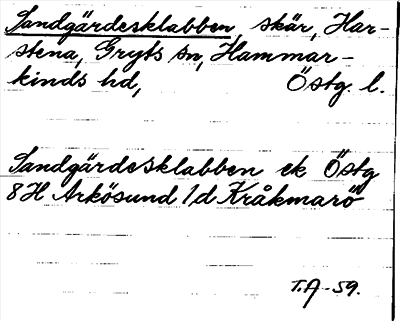 Sandgärdesklabben, skär, Har-
stena, Gryts sn, Hammar-
kinds hd, Östg. l.
Sandgärdesklabben ek Östg
8H Arkösund 1d Kråkmarö
T.A-59.